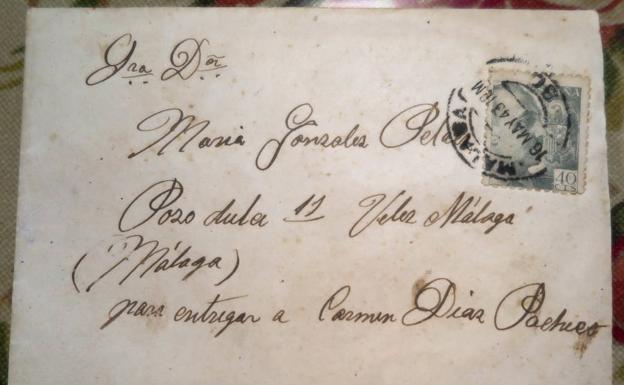 Sra Dña
Maria Gonzalez
Pozo dulce 11 Velez Málaga
(Málaga)
para entregar a Carmen Diaz Pacheco
16 MAY 43
MALAGA
40
CTS